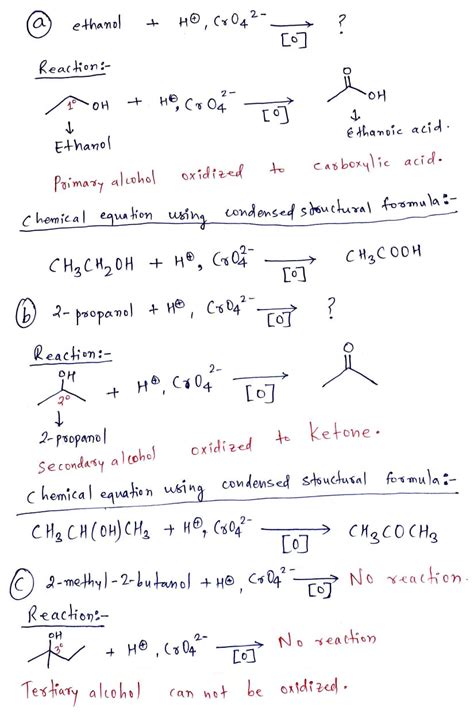 (a) ethanol + H⊕, CrO4 2- → [O] ?
Reaction:-
1° OH + H⊕, CrO4 2- → [O] O OH
↓ ↓
Ethanol Ethanoic acid.
Primary alcohol oxidized to carboxylic acid.
Chemical equation using condensed structural formula:-
CH3CH2OH + H⊕, CrO4 2- → [O] CH3COOH
(b) 2-propanol + H⊕, CrO4 2- → [O] ?
Reaction:-
OH 2° + H⊕, CrO4 2- → [O] O
↓
2-propanol
Secondary alcohol oxidized to Ketone.
Chemical equation using condensed structural formula:-
CH3CH(OH)CH3 + H⊕, CrO4 2- → [O] CH3COCH3
(c) 2-methyl-2-butanol + H⊕, CrO4 2- → [O] No reaction.
Reaction:-
OH 3° + H⊕, CrO4 2- → [O] No reaction
Tertiary alcohol can not be oxidized.